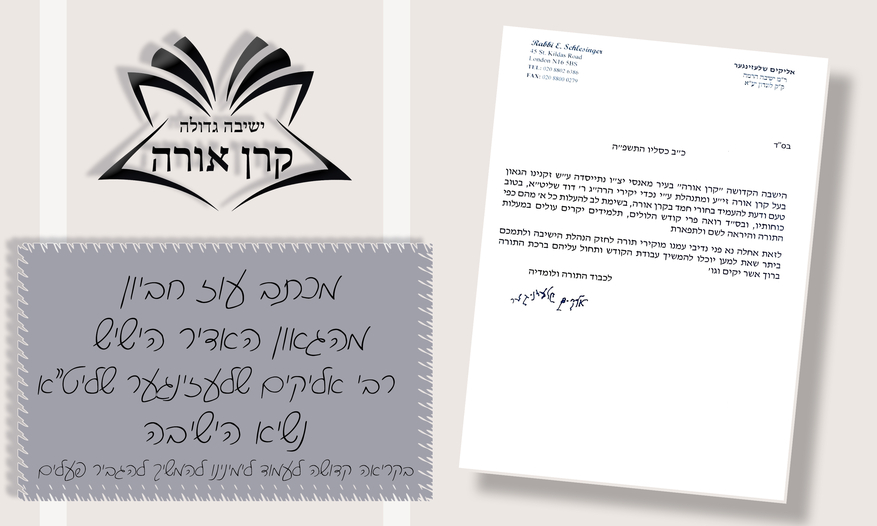 ישיבה גדולה
קרן אורה
מכתב עוז חביון
מהגאון האדיר הישיש
רבי אליקים שלעזינגער שליט"א
נשיא הישיבה
בקריאה קדושה לעמוד לימינינו להמשיך להגביר פעלים
Rabbi E. Schlesinger
45 St. Kildas Road
London N16 5BS
TEL: 020 8802 6186
FAX: 020 8800 0279
אליקים שלעזינגער
ר"מ ישיבה הרמה
ק"ק לונדון יע"א
בס"ד
כ"ב כסליו התשפ"ה
הישבה הקדושה "קרן אורה" בעיר מאנסי יצ"ו נתייסדה ע"ש זקנינו הגאון
בעל קרן אורה זי"ע ומתנהלת ע"י נכדי יקירי הרה"ג ר' דוד שליט"א, בטוב
טעם ודעת להעמיד בחורי חמד בקרן אורה, בשימת לב להעלות כל א' מהם כפי
כוחותיו, ובס"ד רואה פרי קודש הלולים, תלמידים יקרים עולים במעלות
התורה והיראה לשם ולתפארת
לזאת אחלה נא פני נדיבי עמנו מוקירי תורה לחזק הנהלת הישיבה ולתמכם
ביתר שאת למען יוכלו להמשיך עבודת הקודש ותחול עליהם ברכת התורה
ברוך אשר יקים וגו'
לכבוד התורה ולומדיה
אליקים שלעזינגער